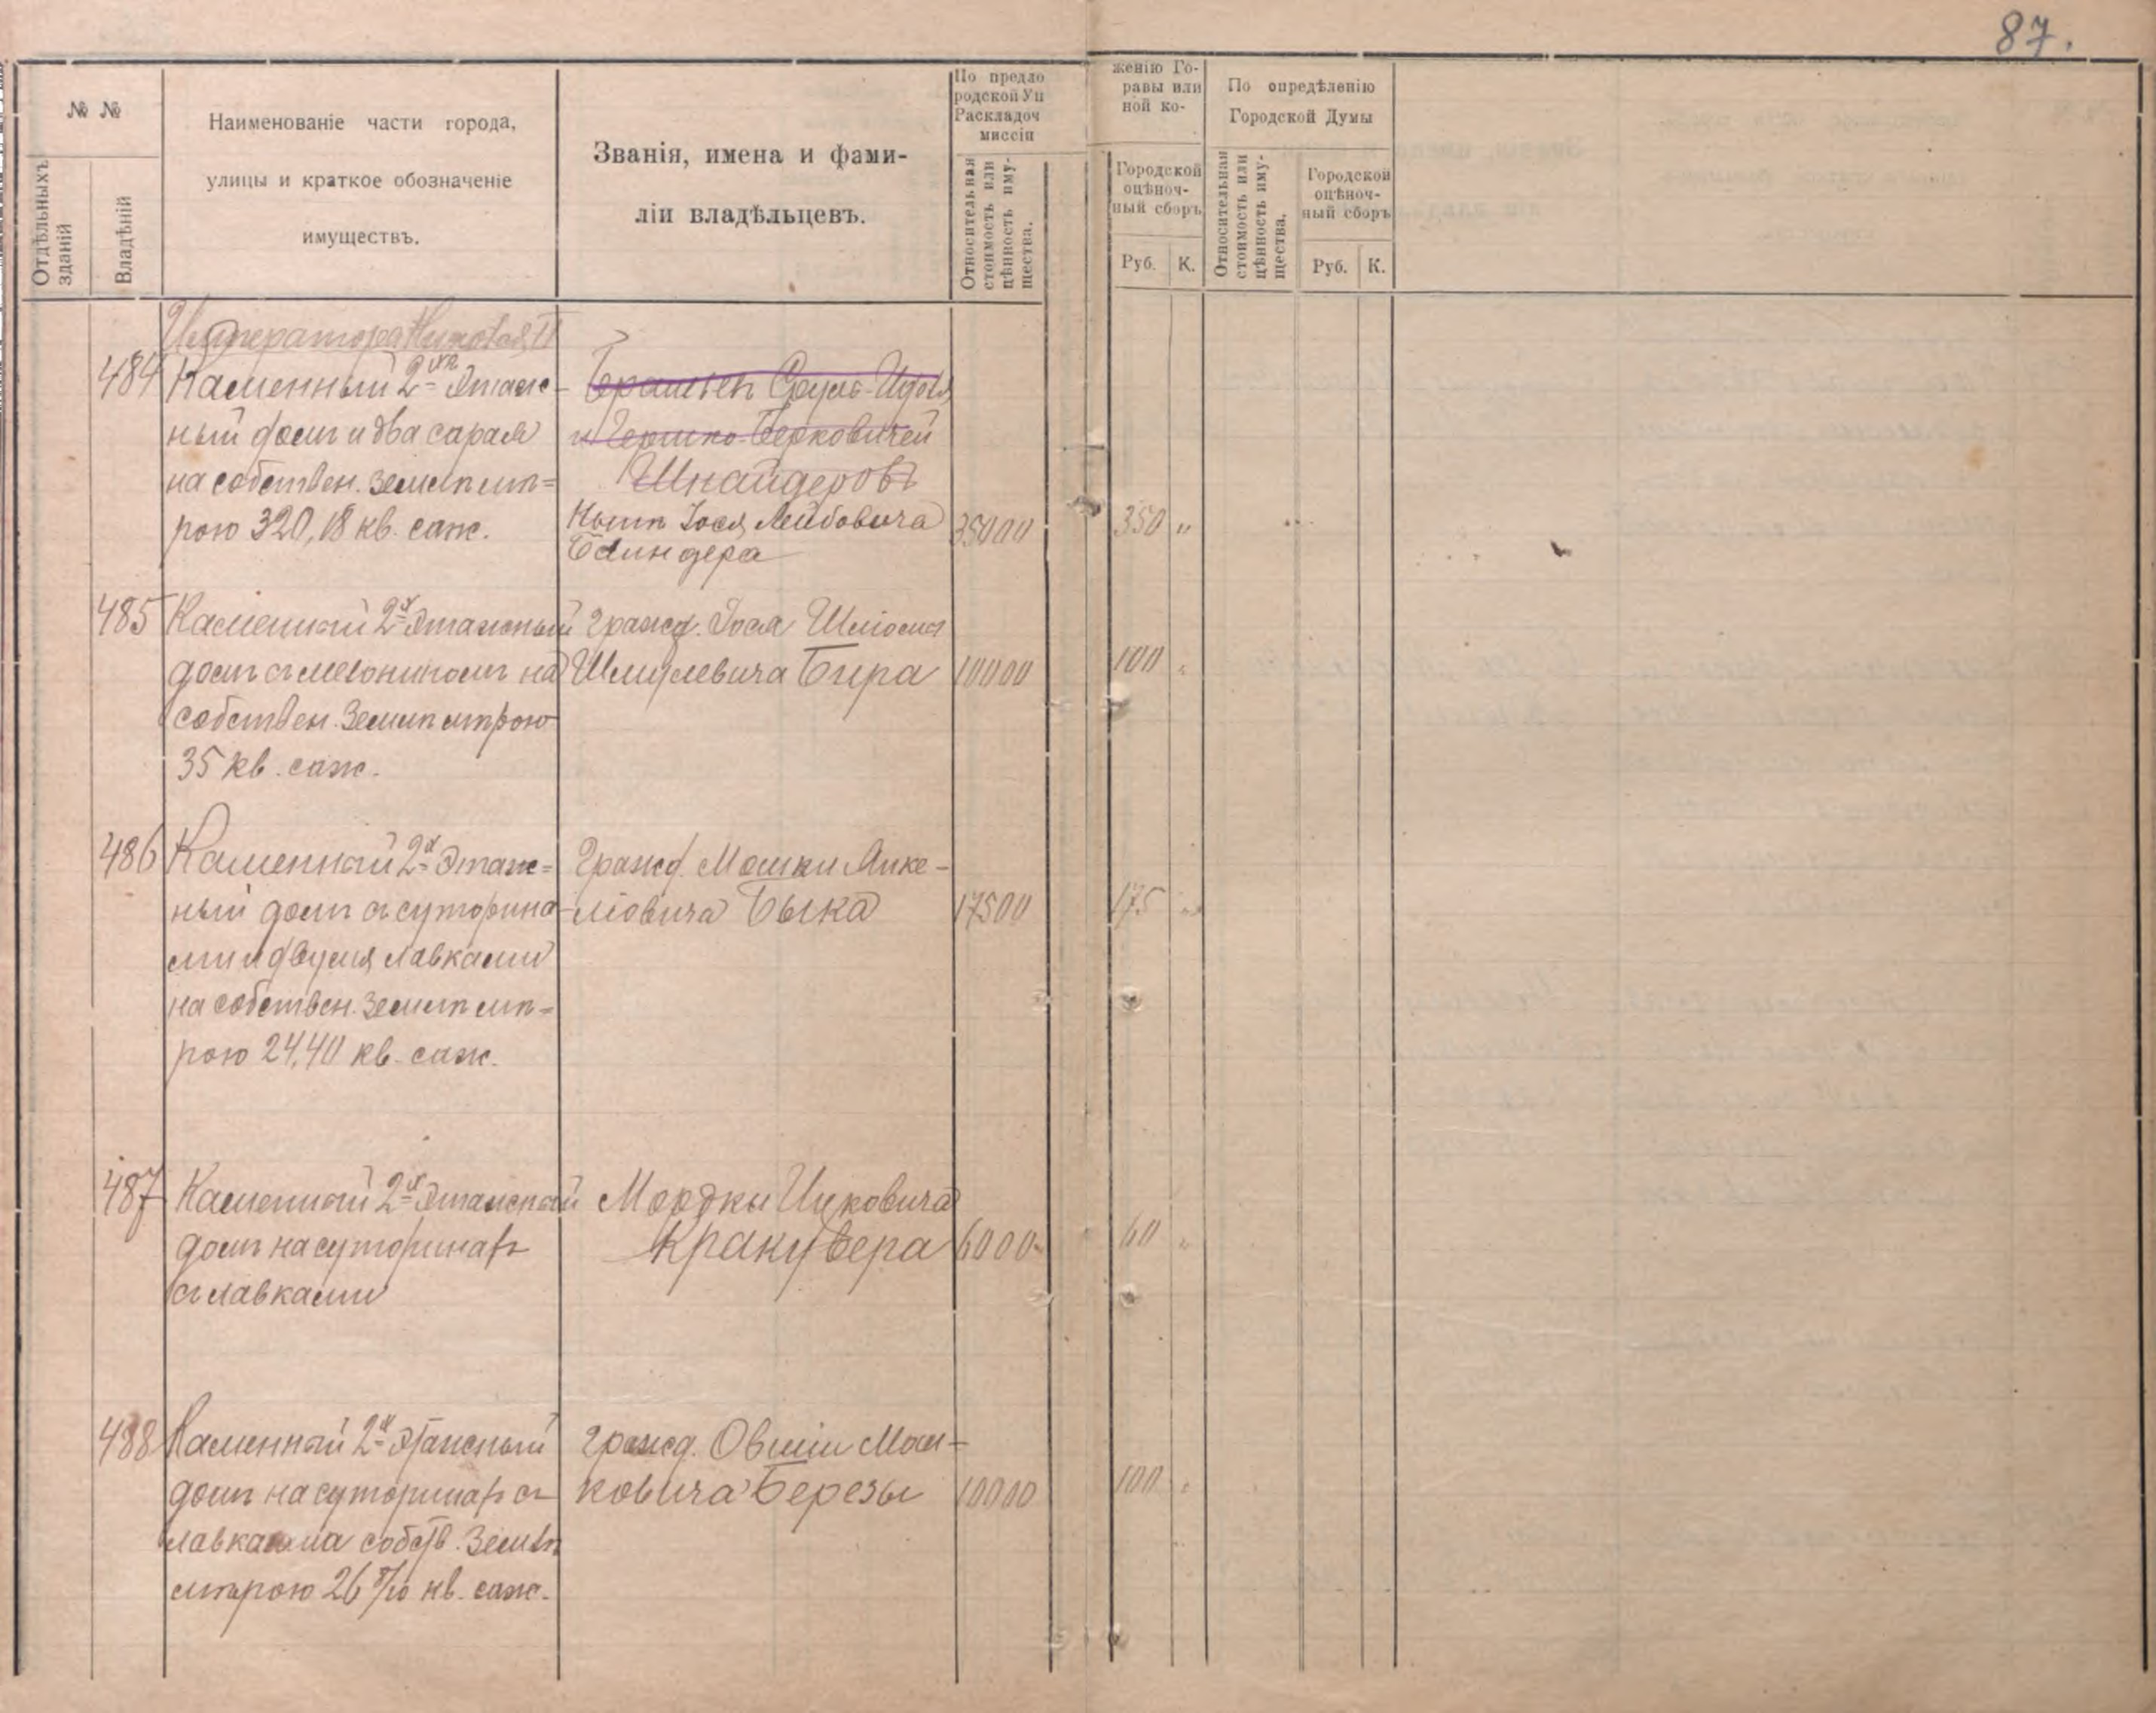 87.
№ №
Отдѣльныхъ зданій
Владѣній
Наименованіе части города,
улицы и краткое обозначеніе
имуществъ.
Званія, имена и фами-
ліи владѣльцевъ.
По предло
родской Уп
Раскладоч
миссіи
Относительная
стоимость или
цѣнность иму-
щества.
женію Го-
равы или
ной ко-
Городской
оцѣноч-
ный сборъ
Руб. К.
По опредѣленію
Городской Думы
Относительная
стоимость или
цѣнность иму-
щества.
Городской
оцѣноч-
ный сборъ
Руб. К.
Императора Николая II
484 Каменный 2хъ Этаж-
ный домъ и два сарая
на собствен. землѣ мѣ=
рою 320,18 кв. саж.
Братьевъ Сруль-Идовъ
и Гершко-Берковичей
Шнайдеровъ
Нынѣ Іося Лейбовича
Блиндера
35000 350 "
485 Каменный 2х Этажный
домъ съ мезониномъ на
собствен. землѣ мѣрою
35 кв. саж.
Гражд. Іося Шліома
Шмулевича Бира
10000 100 "
486 Каменный 2х Этаж=
ный домъ съ суторина-
ми и двумя лавками
на собствен. землѣ мѣ=
рою 24,40 кв. саж.
Гражд. Мошки Янке-
ліовича Быка
17500 175 "
487 Каменный 2х Этажный
домъ на суторинахъ
съ лавками
Мордки Ицковича
Кракувера
6000 60 "
488 Каменный 2х Этажный
домъ на суторинахъ съ
лавками на собств. землѣ
мѣрою 26 8/10 кв. саж.
Гражд. Овшіи Мош-
ковича Березы
10000 100 "